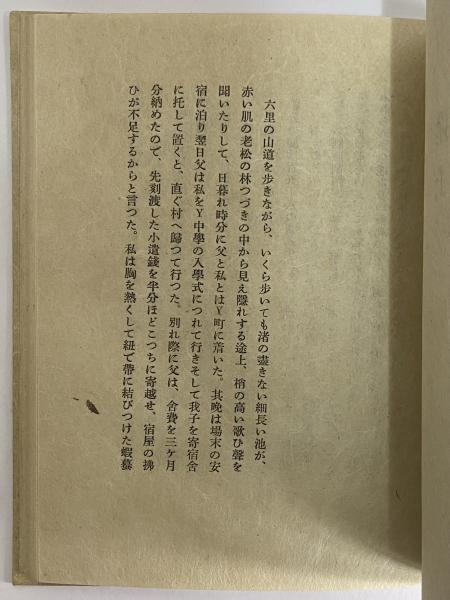 六里の山道を歩きながら、いくら歩いても渚の盡きない細長い池が、
赤い肌の老松の林つづきの中から見え隱れする途上、梢の高い歌ひ聲を
聞いたりして、日暮れ時分に父と私とはＹ町に着いた。其晩は場末の安
宿に泊り翌日父は私をＹ中學の入學式につれて行きそして我子を寄宿舍
に托して置くと、直ぐ村へ歸つて行つた。別れ際に父は、舍費を三ケ月
分納めたので、先刻渡した小遣錢を半分ほどこつちに寄越せ、宿屋の拂
ひが不足するからと言つた。私は胸を熱くして紐で帶に結びつけた蝦蟇